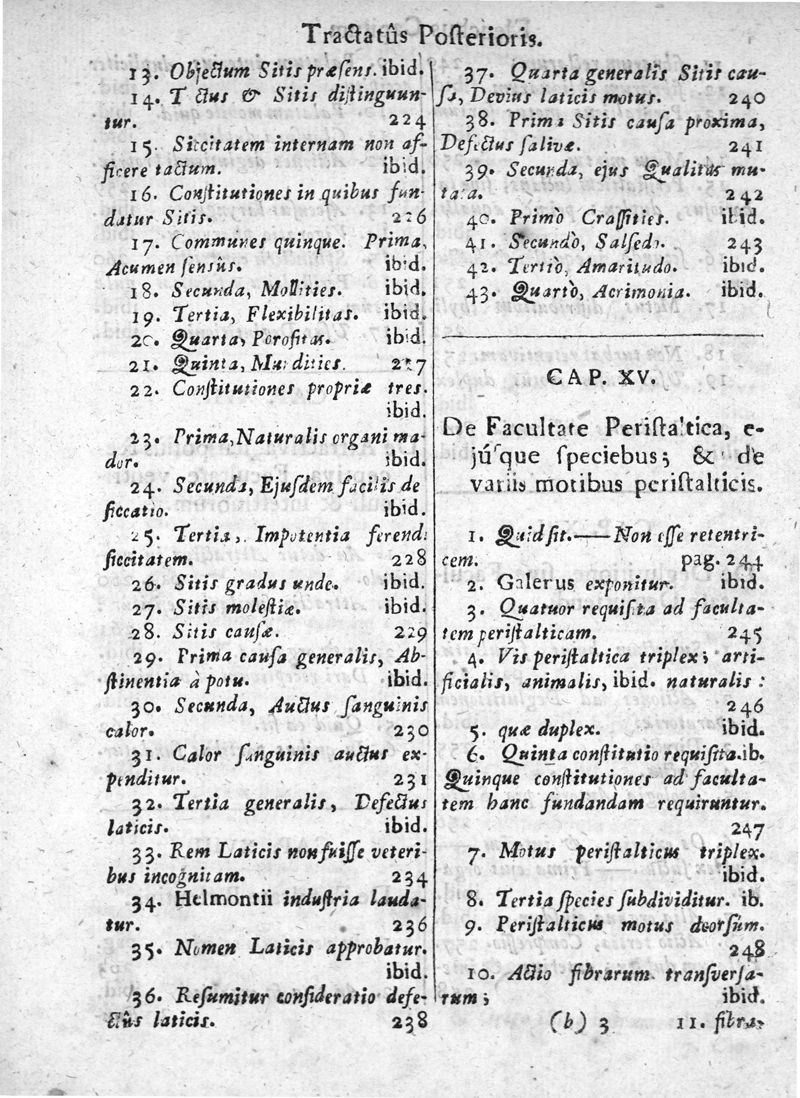 Tractatûs Posterioris.
13. Objectum Sitis præsens. ibid.
14. T ctus & Sitis distinguun-
tur. 224
15. Siccitatem internam non af-
ficere tactum. ibid.
16. Constitutiones in quibus fun-
datur Sitis. 226
17. Communes quinque. Prima,
Acumen sensûs. ibid.
18. Secunda, Mollities. ibid.
19. Tertia, Flexibilitas. ibid.
20. Quarta, Porositas. ibid.
21. Quinta, Mundities. 227
22. Constitutiones propriæ tres.
ibid.
23. Prima, Naturalis organi ma-
dor. ibid.
24. Secunda, Ejusdem facilis de
siccatio. ibid.
25. Tertia, Impotentia ferendi
siccitatem. 228
26. Sitis gradus unde. ibid.
27. Sitis molestiæ. ibid.
28. Sitis causæ. 229
29. Prima causa generalis, Ab-
stinentia à potu. ibid.
30. Secunda, Auctus sanguinis
calor. 230
31. Calor sanguinis auctus ex-
penditur. 231
32. Tertia generalis, Defectus
laticis. ibid.
33. Rem Laticis non fuisse veteri-
bus incognitam. 234
34. Helmontii industria lauda-
tur. 236
35. Nomen Laticis approbatur.
ibid.
36. Resumitur consideratio defe-
ctûs laticis. 238
37. Quarta generalis Sitis cau-
sa, Devius laticis motus. 240
38. Prima Sitis causa proxima,
Defectus salivæ. 241
39. Secunda, ejus Qualitas mu-
tata. 242
40. Primò Crassities. ibid.
41. Secundò, Salsedo. 243
42. Tertiò, Amaritudo. ibid.
43. Quartò, Acrimonia. ibid.
CAP. XV.
De Facultate Peristaltica, e-
júsque speciebus; & de
variis motibus peristalticis.
1. Quid sit.——Non esse retentri-
cem. pag. 244
2. Galenus exponitur. ibid.
3. Quatuor requisita ad faculta-
tem peristalticam. 245
4. Vis peristaltica triplex; arti-
ficialis, animalis, ibid. naturalis :
246
5. quæ duplex. ibid.
6. Quinta constitutio requisita. ib.
Quinque constitutiones ad faculta-
tem hanc fundandam requiruntur.
247
7. Motus peristalticus triplex.
ibid.
8. Tertia species subdividitur. ib.
9. Peristalticus motus deorsùm.
248
10. Actio fibrarum transversa-
rum; ibid.
(b) 3 11. fibra-